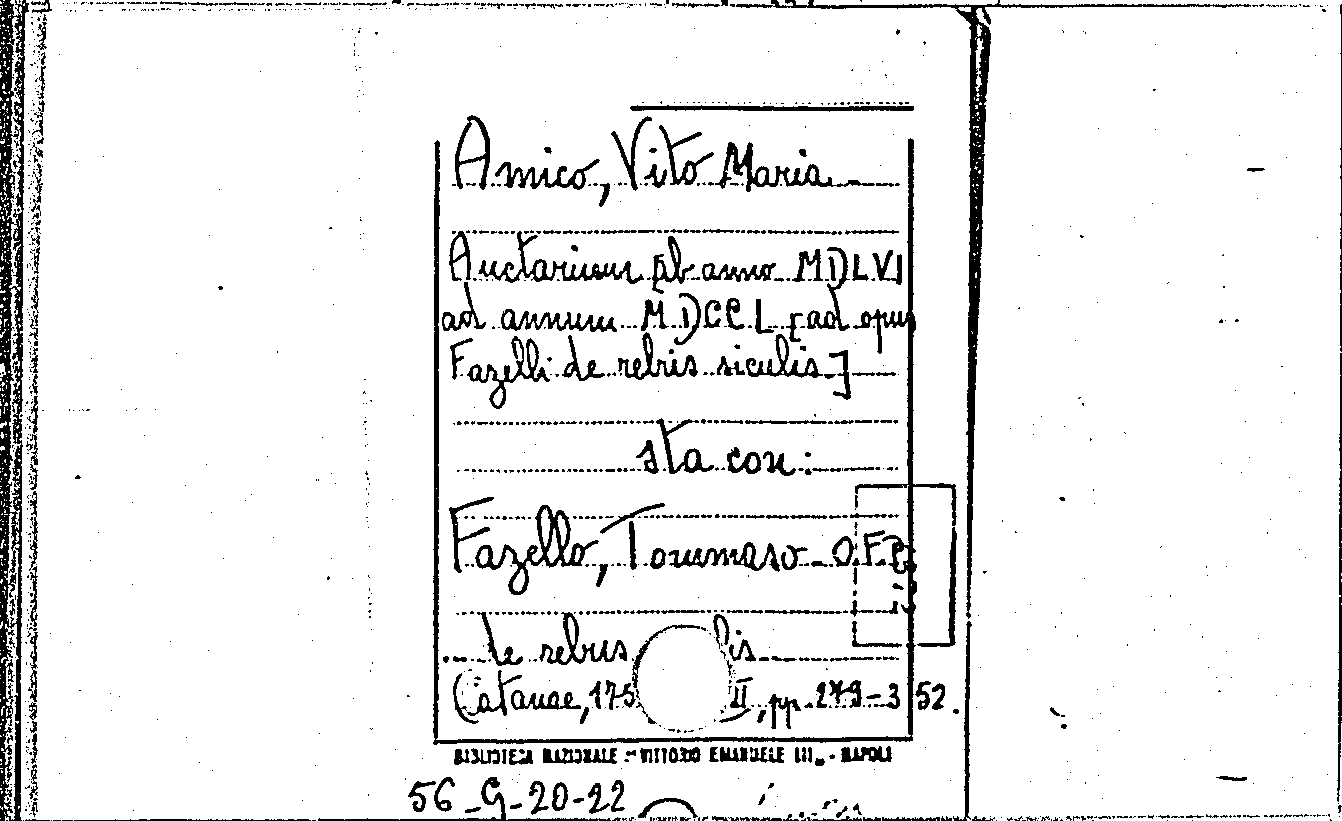 Amico, Vito Maria
Auctarium [ab anno MDLVI
ad annum MDCCL [ad opus
Fazelli de rebus siculis]
sta con:
Fazello, Tommaso - O.F.P.
... de rebus lis
Catanae, 175 II, pp. 279-352.
BIBLIOTECA NAZIONALE - VITTORIO EMANUELE III„ - NAPOLI
56-G-20-22